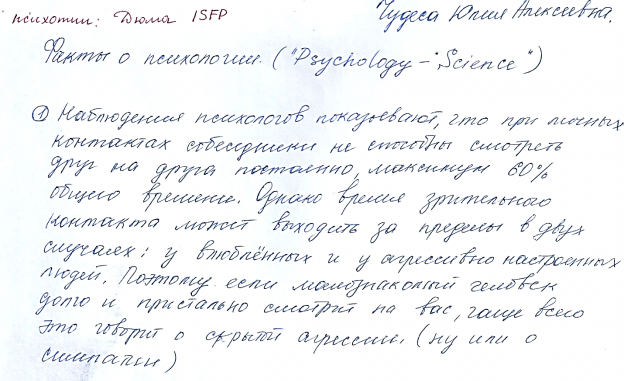 психотип: Дюма ISFP
Чудеса Юлия Алексеевна.
Факты о психологии. ("Psychology – Science")
① Наблюдения психологов показывают, что при личных
контактах собеседники не способны смотреть
друг на друга постоянно, максимум 60%
общего времени. Однако время зрительного
контакта может выходить за пределы в двух
случаях: у влюблённых и у агрессивно настроенных
людей. Поэтому если малознакомый человек
долго и пристально смотрит на вас, чаще всего
это говорит о скрытой агрессии. (ну или о
симпатии)